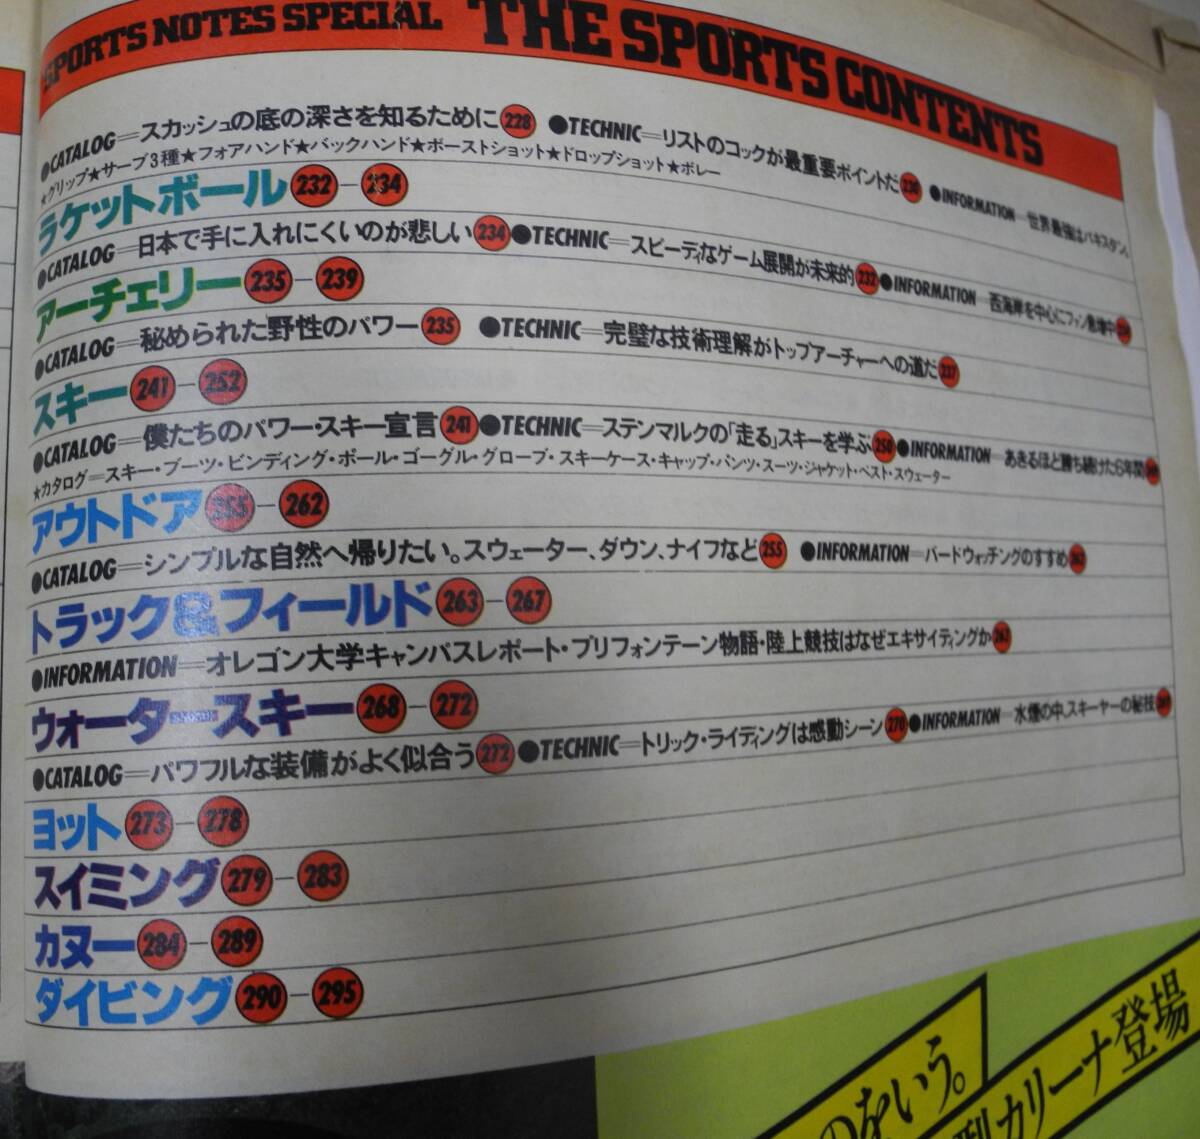 SPORTS NOTES SPECIAL THE SPORTS CONTENTS
●CATALOG=スカッシュの底の深さを知るために228 ●TECHNIC=リストのコックが最重要ポイントだ230 ●INFORMATION=世界最強はパキスタン。
★グリップ★サーブ3種★フォアハンド★バックハンド★ボーストショット★ドロップショット★ボレー
ラケットボール232-234
●CATALOG=日本で手に入れにくいのが悲しい234●TECHNIC=スピーディなゲーム展開が未来的232●INFORMATION=西海岸を中心にファン急増中
アーチェリー235-239
●CATALOG=秘められた野性のパワー235 ●TECHNIC=完璧な技術理解がトップアーチャーへの道だ237
スキー241-252
●CATALOG=僕たちのパワー・スキー宣言241●TECHNIC=ステンマルクの「走る」スキーを学ぶ250●INFORMATION=あきるほど勝ち続けた6年間
★カタログ=スキー・ブーツ・ビンディング・ポール・ゴーグル・グローブ・スキーケース・キャップ・パンツ・スーツ・ジャケット・ベスト・スウェーター
アウトドア255-262
●CATALOG=シンプルな自然へ帰りたい。スウェーター、ダウン、ナイフなど255 ●INFORMATION=バードウォッチングのすすめ262
トラック&フィールド263-267
●INFORMATION=オレゴン大学キャンパスレポート・プリフォンテーン物語・陸上競技はなぜエキサイティングか263
ウォータースキー268-272
●CATALOG=パワフルな装備がよく似合う272●TECHNIC=トリック・ライディングは感動シーン270●INFORMATION=水煙の中、スキーヤーの秘技
ヨット273-278
スイミング279-283
カヌー284-289
ダイビング290-295
のをいう。
カリーナ登場